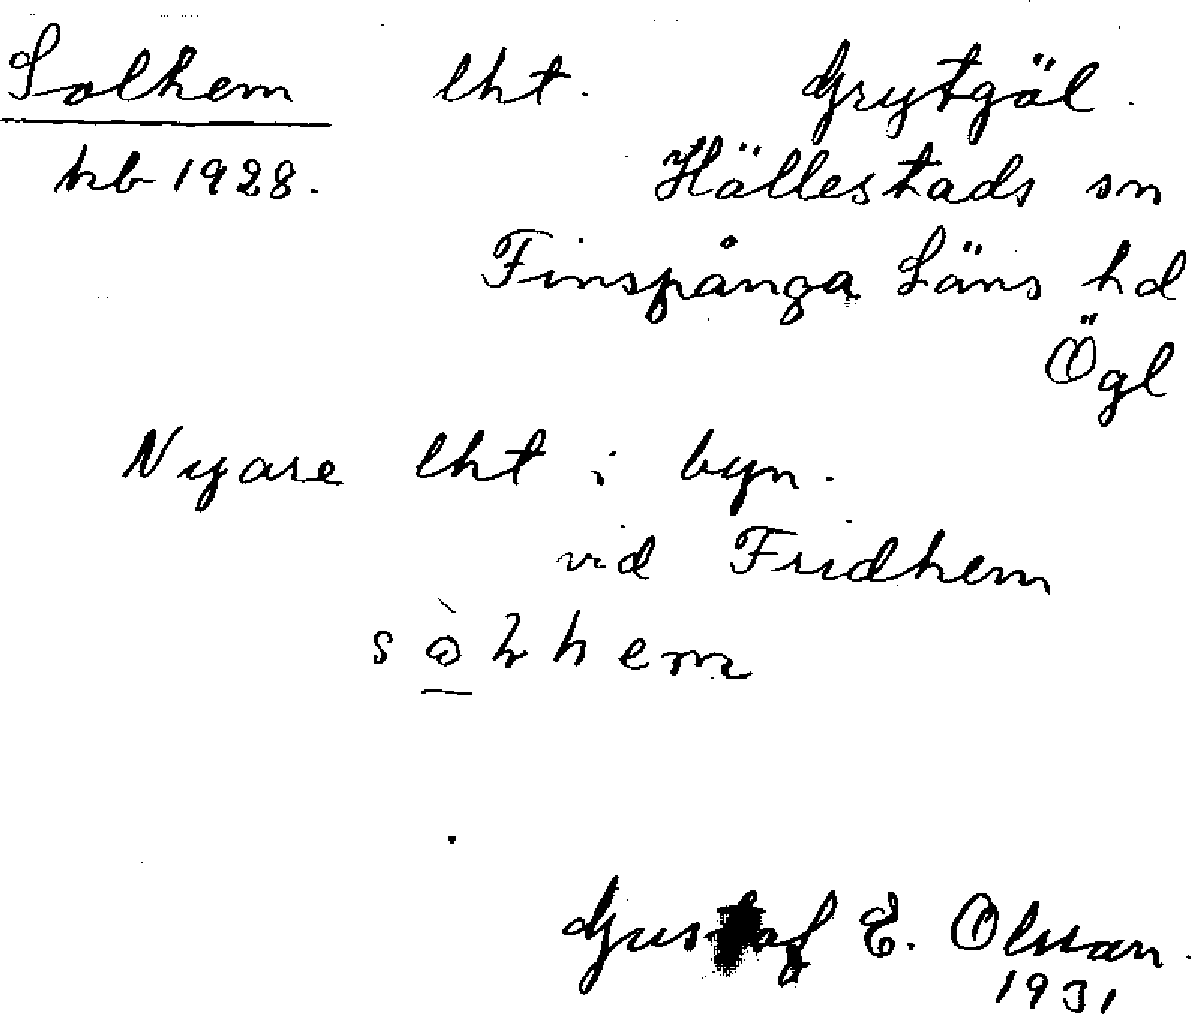 Solhem lht. Grytgöl.
hb 1928. Hällestads sn
Finspånga Läns hd
Ögl
Nyare lht i byn.
vid Fridhem
sò̱lhem
Gustaf E. Olsson.
1931